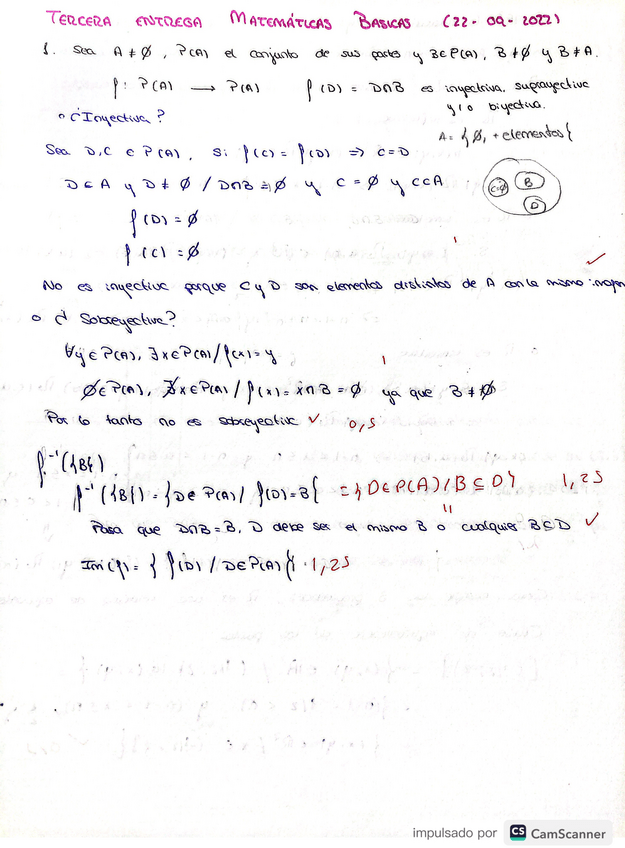 TERCERA ENTREGA MATEMÁTICAS BASICAS (22-09-2022)
1. Sea A ≠ ∅, P(A) el conjunto de sus partes y B∈P(A), B≠∅ y B≠A.
f: P(A) → P(A) f(D) = D∩B es inyectiva, suprayectiva
y/o biyectiva.
¿Inyectiva?
A = {∅, + elementos}
Sea D, C ∈ P(A), si f(C) = f(D) => C=D
D⊂A y D≠∅ / D∩B = ∅ y C = ∅ y C⊂A
C=∅ B D
f(D) = ∅
f(C) = ∅
No es inyectiva porque C y D son elementos distintos de A con la misma imagen
¿Sobreyectiva?
∀y∈P(A), ∃x∈P(A) / f(x)=y
∅∈P(A), ∄x∈P(A) / f(x) = x∩B = ∅ ya que B ≠ ∅
Por lo tanto no es sobreyectiva ✓ 0,5
f⁻¹({B}).
f⁻¹({B}) = {D∈P(A) / f(D)=B} = {D∈P(A) / B⊆D} 1,25
Para que D∩B=B, D debe ser el mismo B o cualquier B⊆D ✓
Im(f) = {f(D) / D∈P(A)} 1,25
impulsado por CS CamScanner